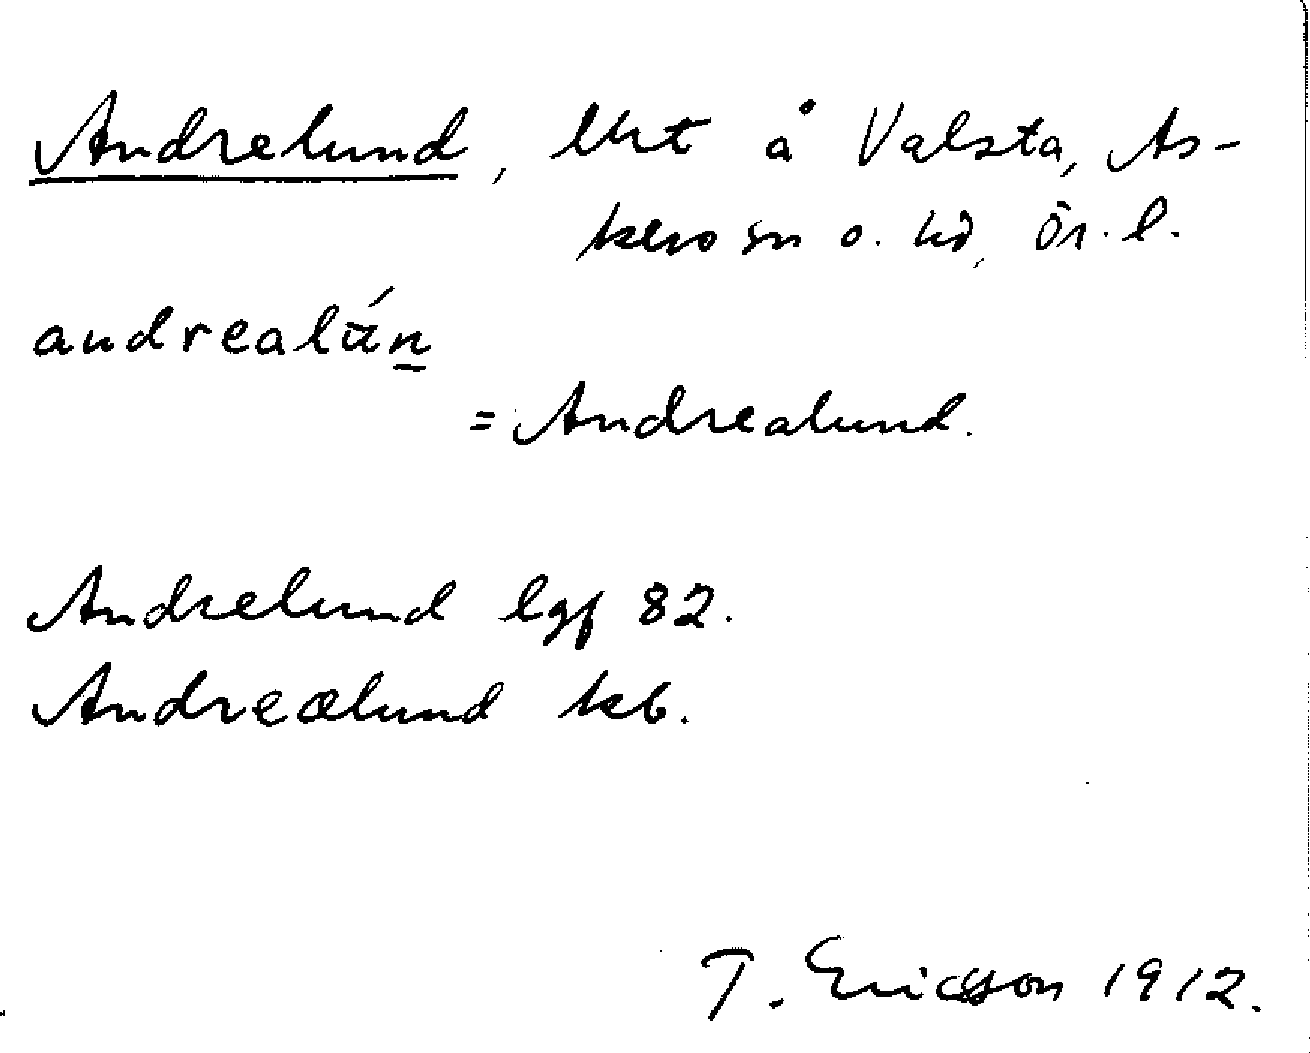 Andrelund, lht å Valsta, As-
kers sn o. hd, Ör. l.
andrealún
= Andrealund.
Andrelund lgf 82.
Andreælund kb.
T. Ericsson 1912.